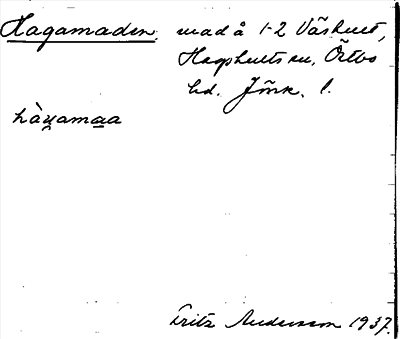 Hagamaden, mad å 1-2 Väshult,
Hagshults sn, Östbo
hd. Jönk. l.
hàgamaa
Fritz Andersson 1937.